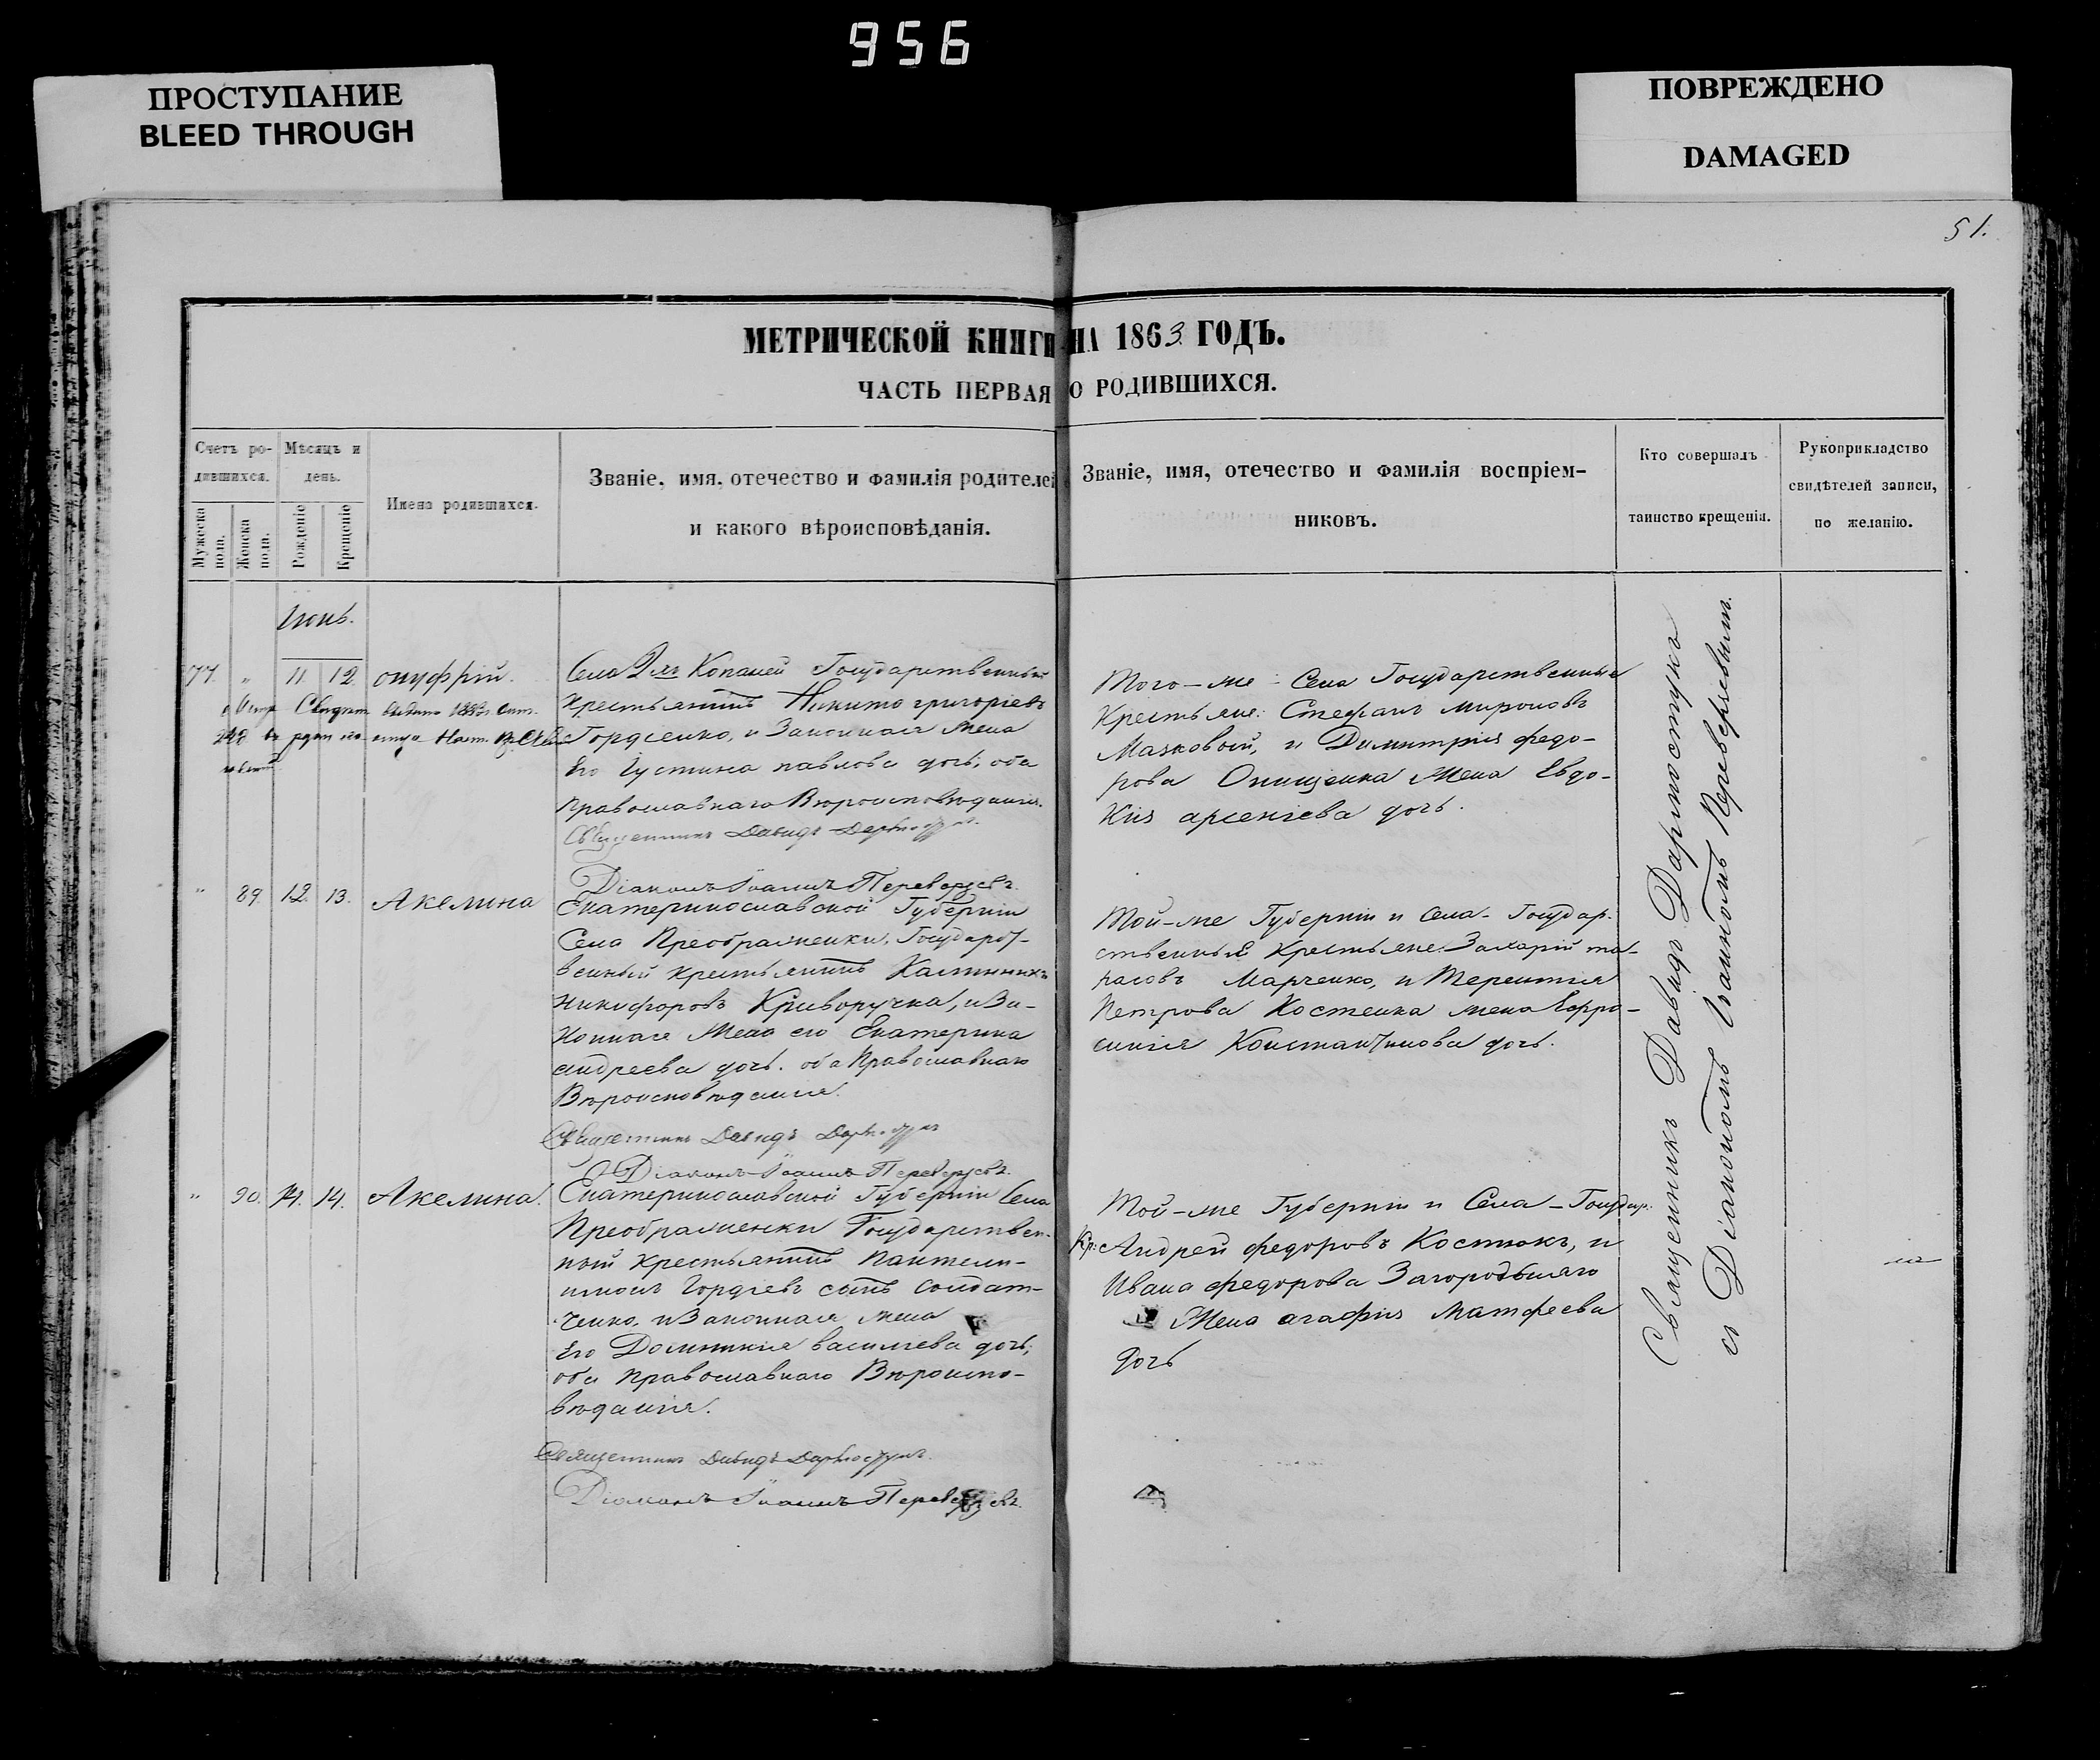 956
ПРОСТУПАНИЕ
BLEED THROUGH
ПОВРЕЖДЕНО
DAMAGED
51.
МЕТРИЧЕСКОЙ КНИГИ НА 1863 ГОДЪ.
ЧАСТЬ ПЕРВАЯ О РОДИВШИХСЯ.
Счетъ ро-
дившихся.
Мужеска
пола.
Женска
пола.
Мѣсяцъ и
день.
Рожденіе
Крещеніе
Имена родившихся.
Званіе, имя, отечество и фамилія родителей
и какого вѣроисповѣданія.
Званіе, имя, отечество и фамилія воспріем-
никовъ.
Кто совершалъ
таинство крещенія.
Рукоприкладство
свидѣтелей записи,
по желанію.
Іюнь.
77. „ 11. 12. онуфрій.
Села Копаней Государственный
Крестьянинъ Никита григоріевъ
Гордіенко, и Законная Жена
Его Іустина павлова дочь, оба
Православнаго Вѣроисповѣданія.
Священникъ Давидъ
Діаконъ Іоаннъ Переверзевъ.
Того-же Села Государственныя
Крестьяне: Стефанъ мироновъ
Мазковой, и Димитрія федо-
рова Онищенка Жена Евдо-
кія арсеніева дочь.
„ 89. 12. 13. Акелина
Екатеринославской Губерніи
Села Преображенки, Государст-
венный крестьянинъ Каллиникъ
никифоровъ Криворучка, и За-
конная Жена его Екатерина
андреева дочь. оба Православнаго
Вѣроисповѣданія.
Священникъ Давидъ
Діаконъ Іоаннъ Переверзевъ.
Той-же Губерніи и Села Государ-
ственныя Крестьяне: Захарій та-
расовъ Марченко, и Терентія
Петрова Костенка жена Евфро-
синія Константинова дочь.
„ 90. 14. 14. Акелина.
Екатеринославской Губерніи Села
Преображенки Государствен-
ный крестьянинъ Пантели-
имонъ Гордіевъ сынъ Солдат-
ченко, и Законная жена
Его Домникія васильева дочь;
оба Православнаго Вѣроиспо-
вѣданія.
Священникъ Давидъ
Діаконъ Іоаннъ Переверзевъ.
Той-же Губерніи и Села Государ:
Кр: Андрей федоровъ Костюкъ, и
Ивана федорова Загородняго
Жена агафія Матфеева
дочь
Священникъ Давидъ
съ Діакономъ Іоанномъ Переверзевымъ.